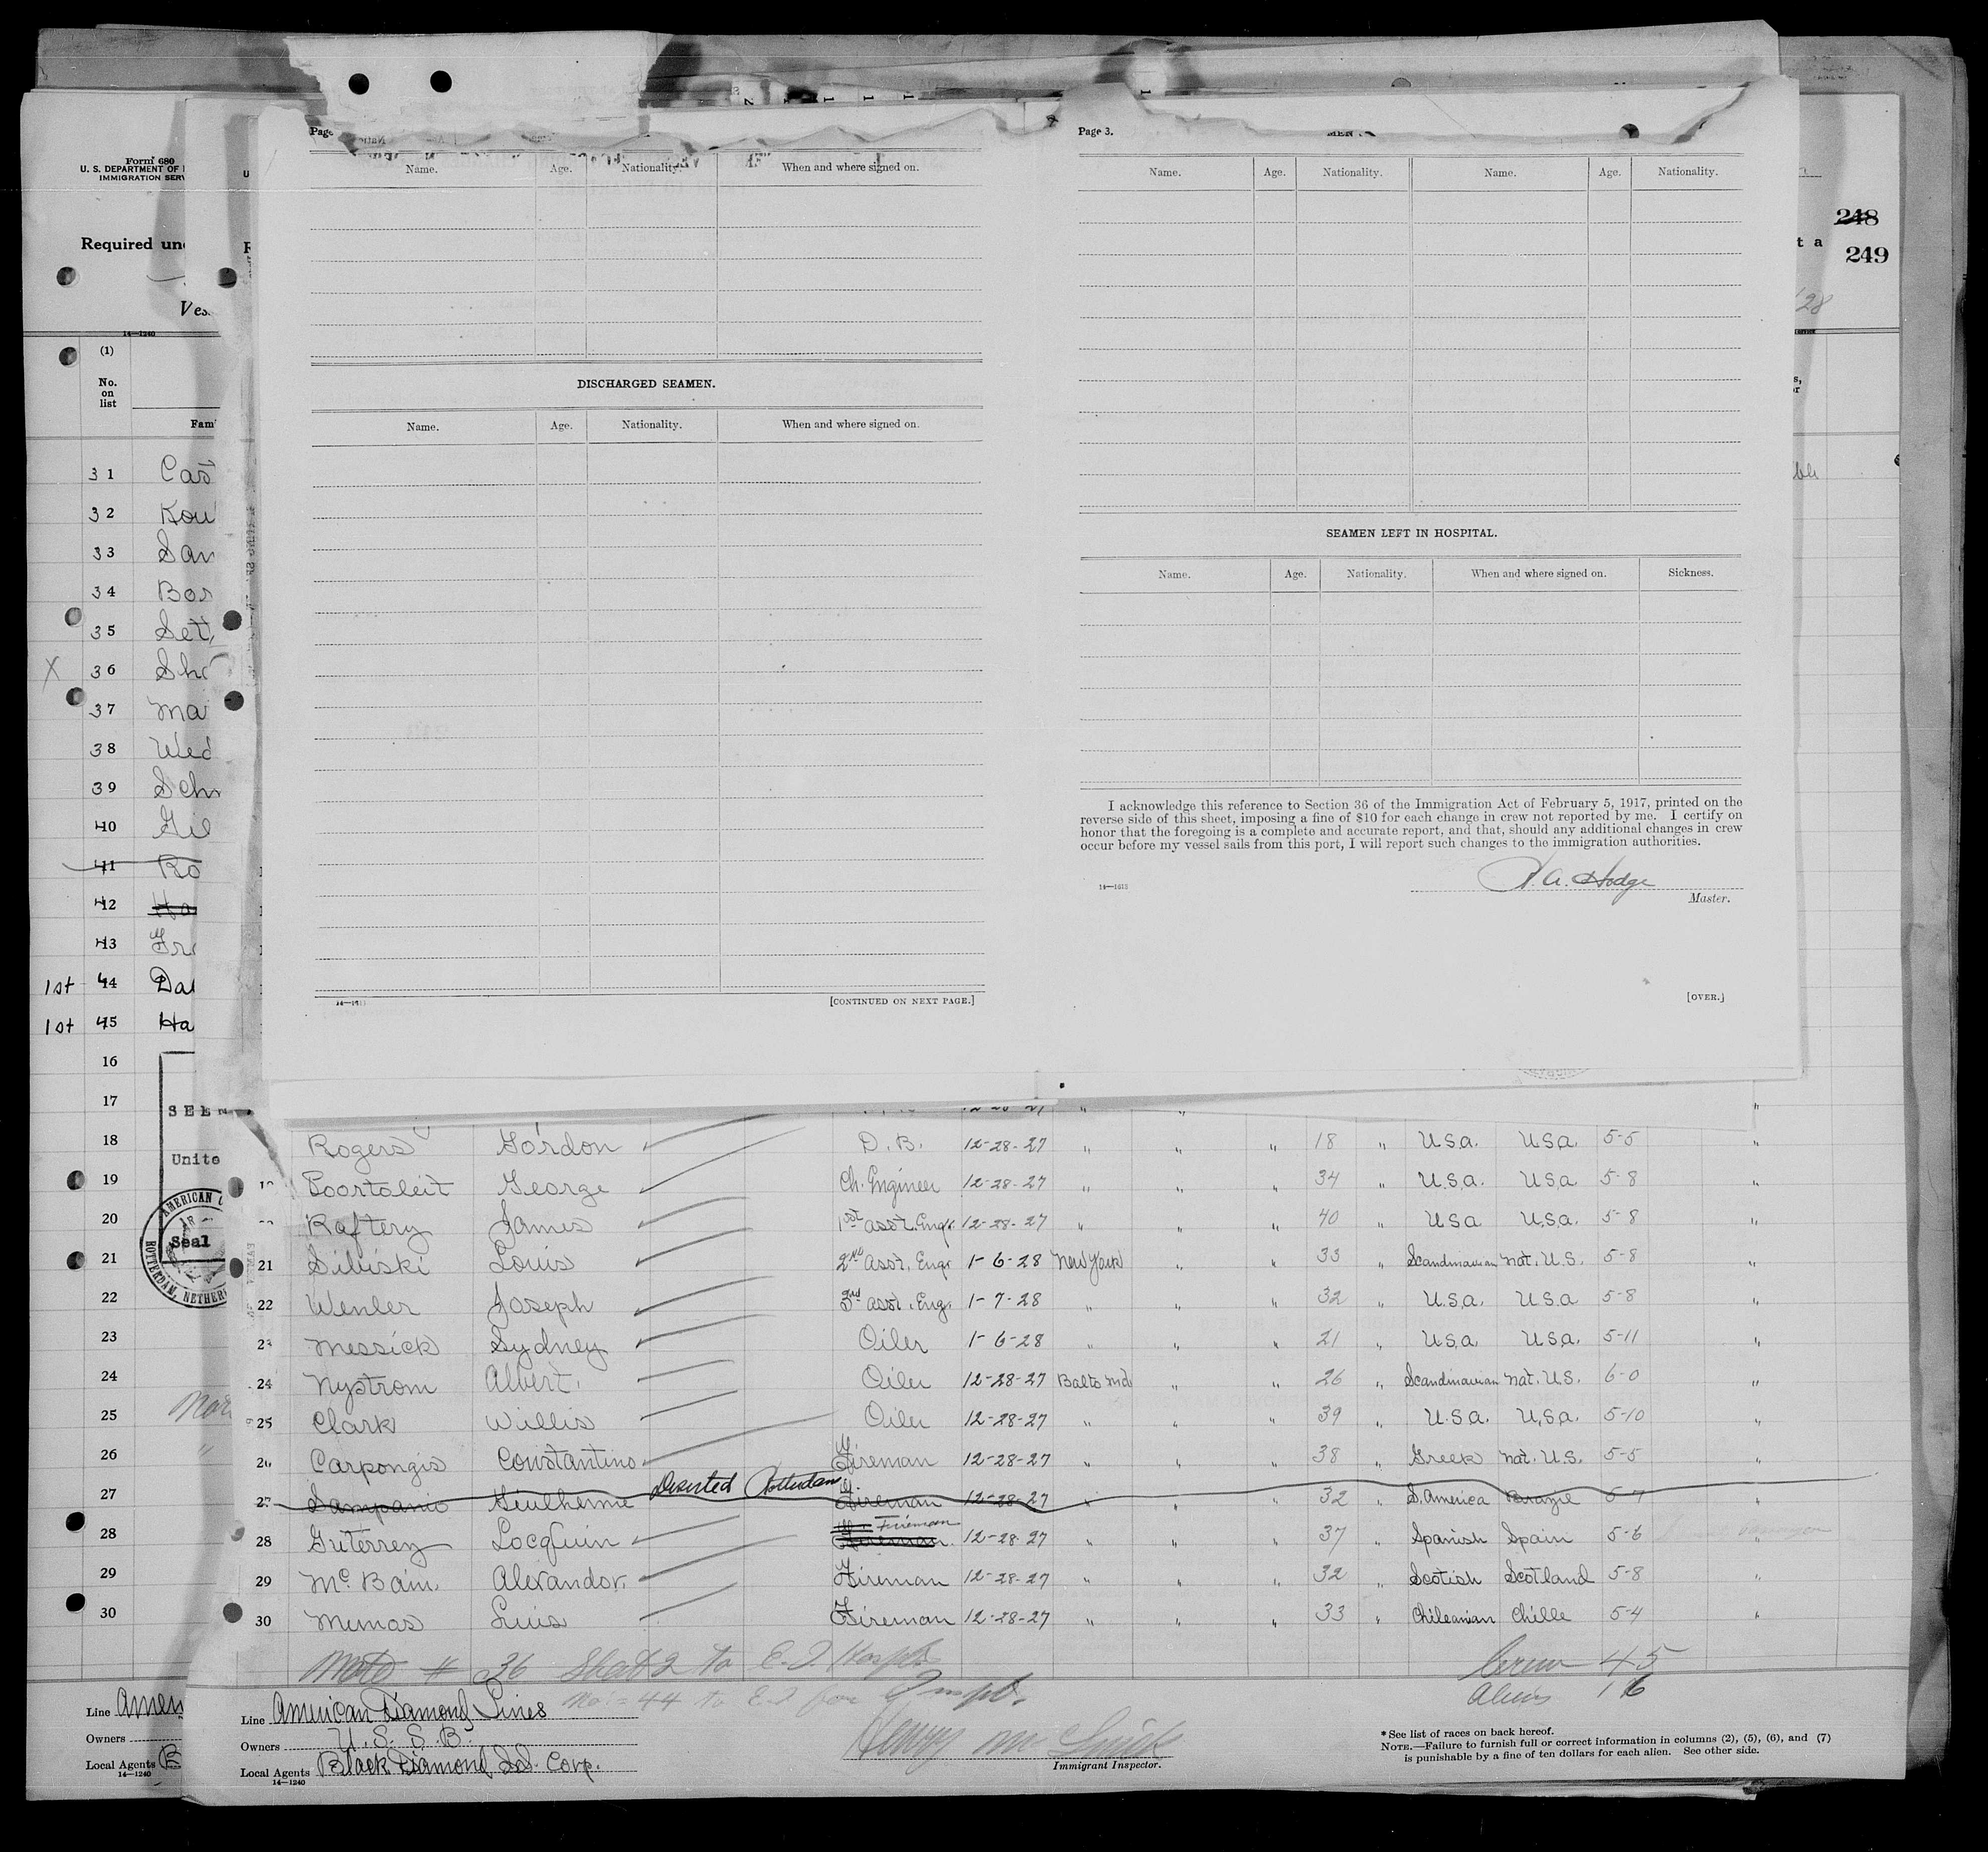 Form 680
U. S. DEPARTMENT OF
IMMIGRATION SERV
Required un
Ves
14—1240
(1)
No.
on
list
Fam
31 Cas
32 Kou
33 San
34 Bos
35 Sett
X 36 Sho
37 Mai
38 Wed
39 Sch
40 Gil
41 Ro
42 Ha
43 Fr
1st 44 Dal
1st 45 Ha
16
17
18
19
20
21
22
23
24
25
26
27
28
29
30
SEEN
Unite
AMERICAN
Seal
ROTTERDAM, NETHER
Line Amer
Owners
Local Agents B
14—1240
248
249
t a
/28
Page
Name. Age. Nationality. When and where signed on.
DISCHARGED SEAMEN.
Name. Age. Nationality. When and where signed on.
[CONTINUED ON NEXT PAGE.]
Page 3.
Name. Age. Nationality. Name. Age. Nationality.
SEAMEN LEFT IN HOSPITAL.
Name. Age. Nationality. When and where signed on. Sickness.
I acknowledge this reference to Section 36 of the Immigration Act of February 5, 1917, printed on the
reverse side of this sheet, imposing a fine of $10 for each change in crew not reported by me. I certify on
honor that the foregoing is a complete and accurate report, and that, should any additional changes in crew
occur before my vessel sails from this port, I will report such changes to the immigration authorities.
14—1613
A. Hodge
Master.
[OVER.]
Rogers Gordon D. B. 12-28-27 " " " 18 " U.S.a. U.S.a. 5-5 "
Poortoleit George Ch. Engineer 12-28-27 " " " 34 " U.S.a. U.S.a 5-8 "
Raftery James 1st asst. Engr. 12-28-27 " " " 40 " U.S.a U.S.a. 5-8 "
21 Sibiski Louis 2nd asst. Engr 1-6-28 New York " " 33 " Scandinavian nat. U.S. 5-8 "
22 Wenler Joseph 3rd asst. Eng. 1-7-28 " " " 32 " U.S.a. U.S.a 5-8 "
23 Messick Sydney Oiler 1-6-28 " " " 21 " U.S.a. U.S.a. 5-11 "
24 Nystrom Albert. Oiler 12-28-27 Balto Md. " " 26 " Scandinavian nat. U.S. 6-0 "
25 Clark Willis Oiler 12-28-27 " " " 39 " U.S.a. U.S.a. 5-10 "
26 Carpongis Constantino Fireman 12-28-27 " " " 38 " Greek nat. U.S. 5-5 "
Deserted Rotterdam.
27 Sampanio Giulherme Fireman 12-28-27 " " " 32 " S. America Brazil 5-7 "
Fireman
28 Guterrez Locquin Fireman. 12-28-27 " " " 37 " Spanish Spain 5-6 "
29 Mc. Bain. Alexandor. Fireman 12-28-27 " " " 32 " Scotish Scotland 5-8 "
30 Mumos Luis Fireman 12-28-27 " " " 33 " Chileanian Chille 5-4 "
Note # 36 Sheet 2 to E. I. Hospl
Crew 45
No. 44 to E.I. for Inspt.
Aliens 16
Line American Diamond Lines
Owners U. S. S. B.
Local Agents Black Diamond S.S. Corp.
14—1240
Immigrant Inspector.
* See list of races on back hereof.
NOTE.—Failure to furnish full or correct information in columns (2), (5), (6), and (7)
is punishable by a fine of ten dollars for each alien. See other side.